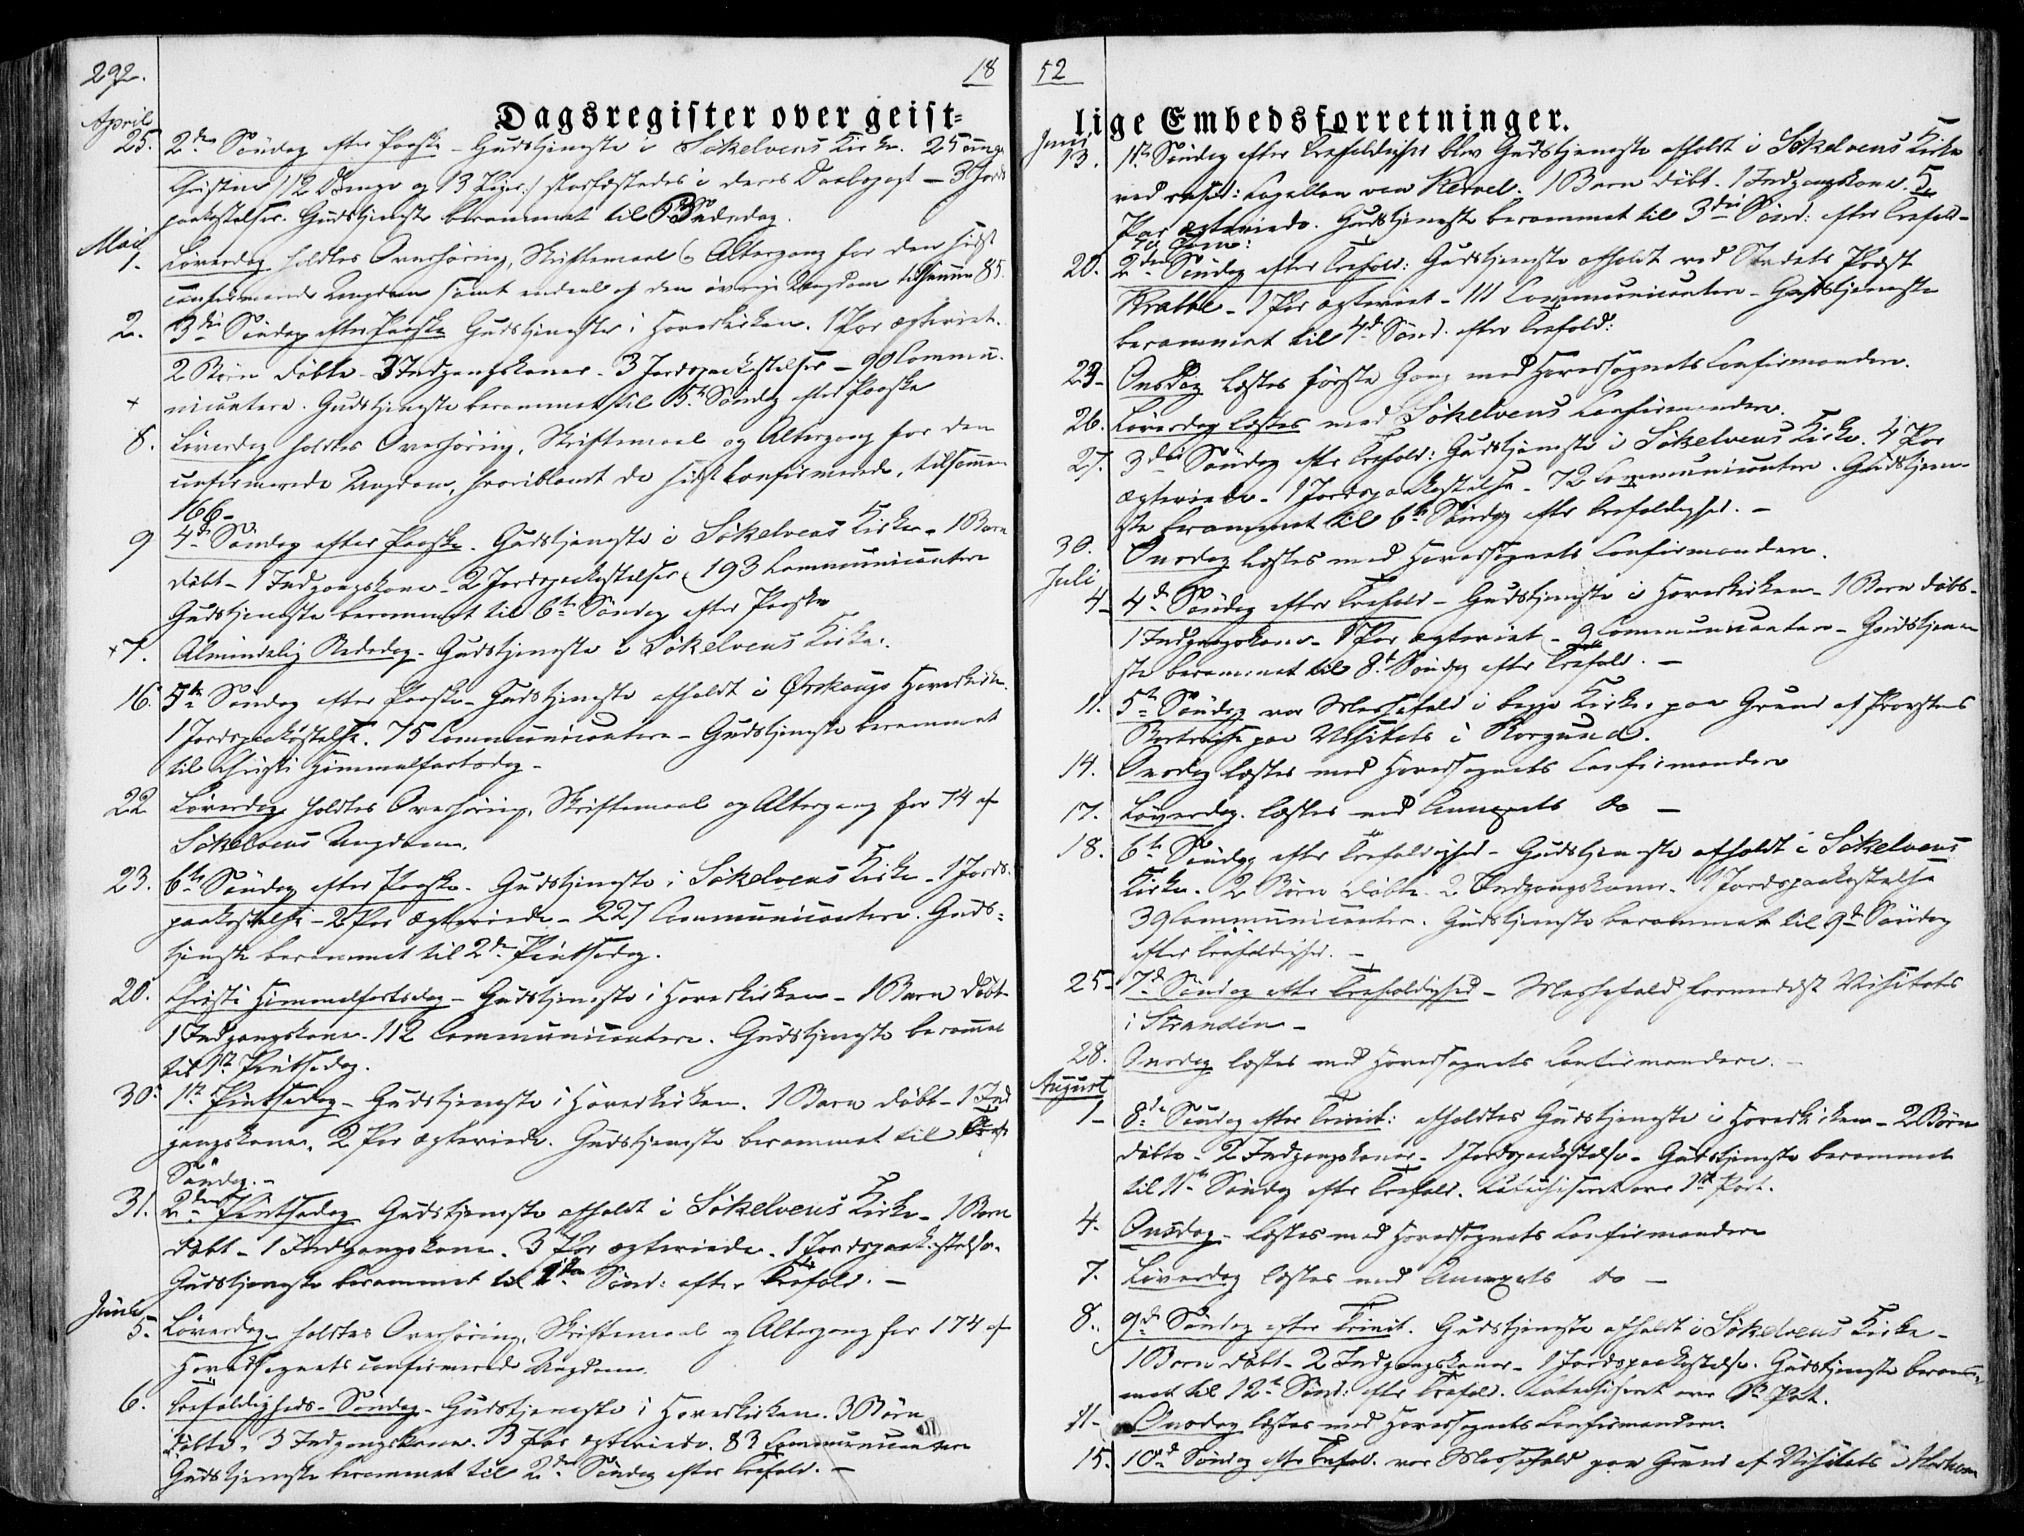 292.
18
Dagsregister over geist=
April
25. 2den Søndag efter Paaske - Gudstjeneste i Søkelvens Kirke. 25 unge
Christne (12 Drenge og 13 Piger) stadfæstedes i deres Daabspagt - 3 Jords
paakastelser. Gudstjeneste berammet til Bededag.
Mai
1. Løverdag holdtes Overhøring, Skriftemaal og Altergang for den sidst
confirmerede Ungdom samt endeel af den øvrige Ungdom tilsammen 85.
2. 3die Søndag efter Paaske Gudstjeneste i Hovedkirken. 1 Par ægteviet.
2 Børn døbte - 3 Indgangskoner - 3 Jordspaakastelser - 90 Commu-
+ nicantere. Gudstjeneste berammet til 5te Søndag efter Paaske
8. Løverdag holdtes Overhøring, Skriftemaal og Altergang for den
confirmerede Ungdom, hvoriblandt de sidst Confirmerede, tilsammen
166 -
9 4de Søndag efter Paaske. Gudstjeneste i Søkelvens Kirke - 1 Barn
døbt - 1 Indgangskone - 2 Jordspaakastelser, 193 Communicantere
Gudstjeneste berammet til 6te Søndag efter Paaske
+7. Almindelig Bededag - Gudstjeneste i Søkelvens Kirke.
16. 5te Søndag efter Paaske - Gudstjeneste afholdt i Ørskougs Hovedkirke.
1 Jordspaakastelse. 75 Communicantere - Gudstjeneste berammet
til Christi Himmelfartsdag -
22 Løverdag holdtes Overhøring, Skriftemaal og Altergang for 74 af
Søkelvens Ungdom.
23. 6te Søndag efter Paaske - Gudstjeneste i Søkelvens Kirke - 1 Jords-
paakastelse - 2 Par ægteviede - 227 Communicantere. Guds-
tjeneste berammet til 2den Pintsedag.
20. Christi Himmelfartsdag - Gudstjeneste i Hovedkirken - 1 Barn døbt
1 Indgangskone - 112 Communicantere. Gudstjeneste berammet
til 1ste Pintsedag.
30. 1ste Pintsedag - Gudstjeneste i Hovedkirken. 1 Barn døbt - 1 Ind
gangskone, 2 Par ægteviede. Gudstjeneste berammet til Tref.
Søndag. -
31. 2den Pintsedag Gudstjeneste afholdt i Søkelvens Kirke - 1 Barn
døbt - 1 Indgangskone. 3 Par ægteviede - 1 Jordspaakastelse.
Gudstjeneste berammet til 1ste Sønd: efter Trefold. -
Juni
5. Løverdag holdtes Overhøring, Skriftemaal og Altergang for 174 af
Hovedsognets confirmerede Ungdom.
6. Trefoldigheds-Søndag - Gudstjeneste i Hovedkirken. 3 Børn
døbte, 3 Indgangskoner. 3 Par ægteviede. 83 Communicantere
Gudstjeneste berammet til 2den Søndag efter Trefold. -
52
lige Embedsforretninger.
Juni
13. 1ste Søndag efter Trefoldighed blev Gudstjeneste afholdt i Søkelvens Kirke
ved resid: Capellan von Kervel. 1 Barn døbt - 1 Indgangskone. 5
Par ægteviede. Gudstjeneste berammet til 3die Sønd: efter Trefold-
20. 2den Søndag efter Trefold: Gudstjeneste afholdt ved Stedets Præst
Krabbe - 1 Par ægteviet - 111 Communicantere - Gudstjeneste
berammet til 4de Sønd. efter Trefold:
23- Onsdag læstes første Gang med Hovedsognets Confirmander.
26. Løverdag læstes med Søkelvens Confirmander.
27. 3die Søndag efter Trefold: Gudstjeneste i Søkelvens Kirke. 4 Par
ægteviede - 1 Jordspaakastelse - 72 Communicantere. Gudstjene-
ste berammet til 6te Søndag efter Trefoldighed. -
30. Onsdag læstes med Hovedsognets Confirmander.
Juli
4- 4de Søndag efter Trefold - Gudstjeneste i Hovedkirken - 1 Barn døbt-
1 Indgangskone - 1 Par ægteviet - 9 Communicantere - Gudstjene
ste berammet til 8de Søndag efter Trefold. -
11. 5te Søndag var Messefald i begge Kirker paa Grund af Provstens
Bortreise paa Visitats i Borgund.
14. Onsdag læstes med Hovedsognets Confirmander
17. Løverdag. læstes med Annexets do -
18. 6te Søndag efter Trefoldighed - Gudstjeneste afholdt i Søkelvens
Kirke. 2 Børn døbte - 2 Indgangskoner - 1 Jordspaakastelse
39 Communicanter. Gudstjeneste berammet til 9de Søndag
efter Trefoldighed. -
25- 7de Søndag efter Trefoldighed - Messefald formedelst Visitats
i Stranden -
28. Onsdag læstes med Hovedsognets Confirmandere. -
August
1- 8de Søndag efter Trinit: afholdtes Gudstjeneste i Hovedkirken - 2 Børn
døbte - 2 Indgangskoner - 1 Jordspaakastelse - Gudstjeneste berammet
til 11te Søndag efter Trefold. Catechiseret over 1ste Part.
4. Onsdag - læstes med Hovedsognets Confirmandere
7. Løverdag læstes med Annexets do -
8. 9de Søndag efter Trinit. Gudstjeneste afholdt i Søkelvens Kirke -
1 Barn døbt - 2 Indgangskoner - 1 Jordspaakastelse. Gudstjeneste beram-
met til 12te Sønd. efter Trefold. Catechiseret over Part.
11- Onsdag læstes med Hovedsognets Confirmandere.
15. 10de Søndag efter Trefold. var Messefald paa Grund af Visitats i